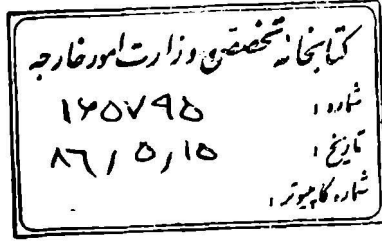 کتابخانه تخصصی وزارت امور خارجه
شماره : ۱۶۵۷۹۵
تاریخ : ۸۶/۵/۱۵
شماره کامپیوتر :